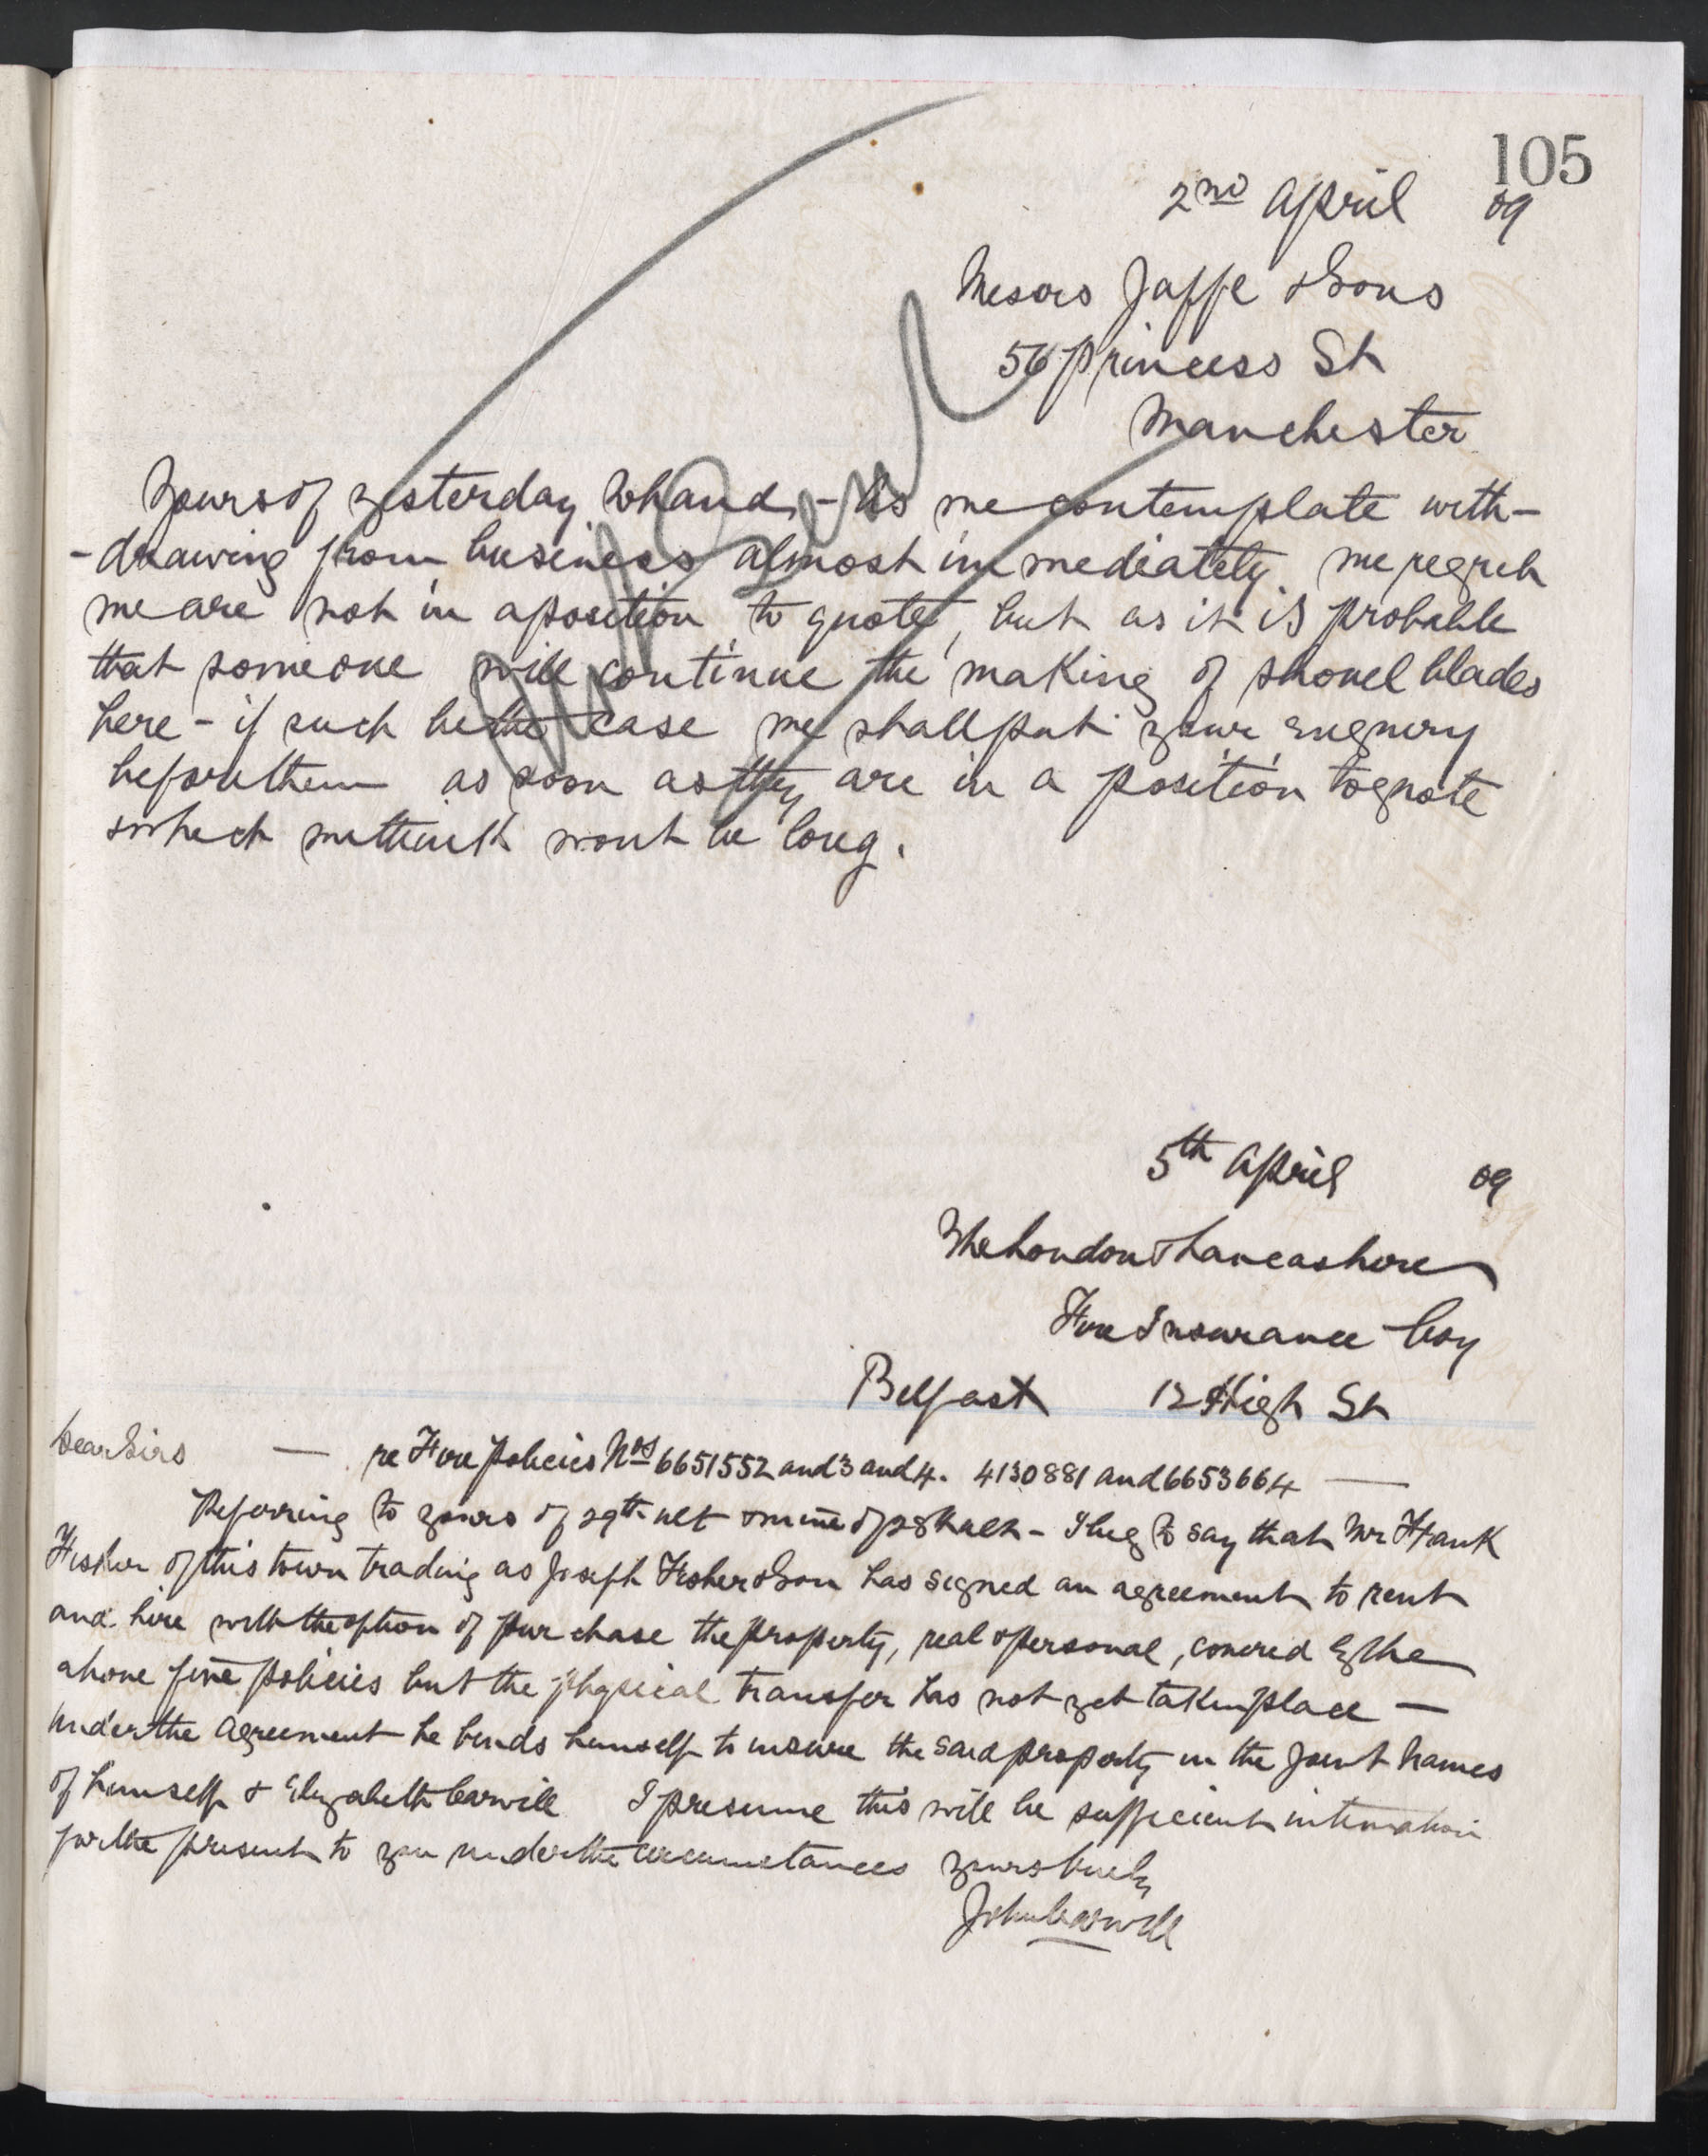 105
2nd April 09
Messrs Jaffe & Sons
56 Princess St
Manchester
Yours of yesterday to hand, - As we contemplate with-
-drawing from business almost immediately. we regret
we are not in a position to quote, but as it is probable
that someone will continue the making of shovel blades
here - if such be the case we shall put your enquiry
before them as soon as they are in a position to quote
which we think wont be long.
5th April 09
The London & Lancashire
Fire Insurance Coy
Belfast 12 High St
Dear Sirs — re Fire Policies Nos 6651552 and 3 and 4. 4130881 and 6653664 —
Referring to yours of 29th ult & mine of 28th ult - I beg to say that Mr Frank
Fisher of this town trading as Joseph Fisher & Son has signed an agreement to rent
and hire with the option of purchase the property, real & personal, covered by the
above five policies but the physical transfer has not yet taken place —
Under the agreement he binds himself to insure the said property in the joint names
of himself & Elizabeth Carvill I presume this will be sufficient intimation
for the present to you under the circumstances yours truly
John Carvill